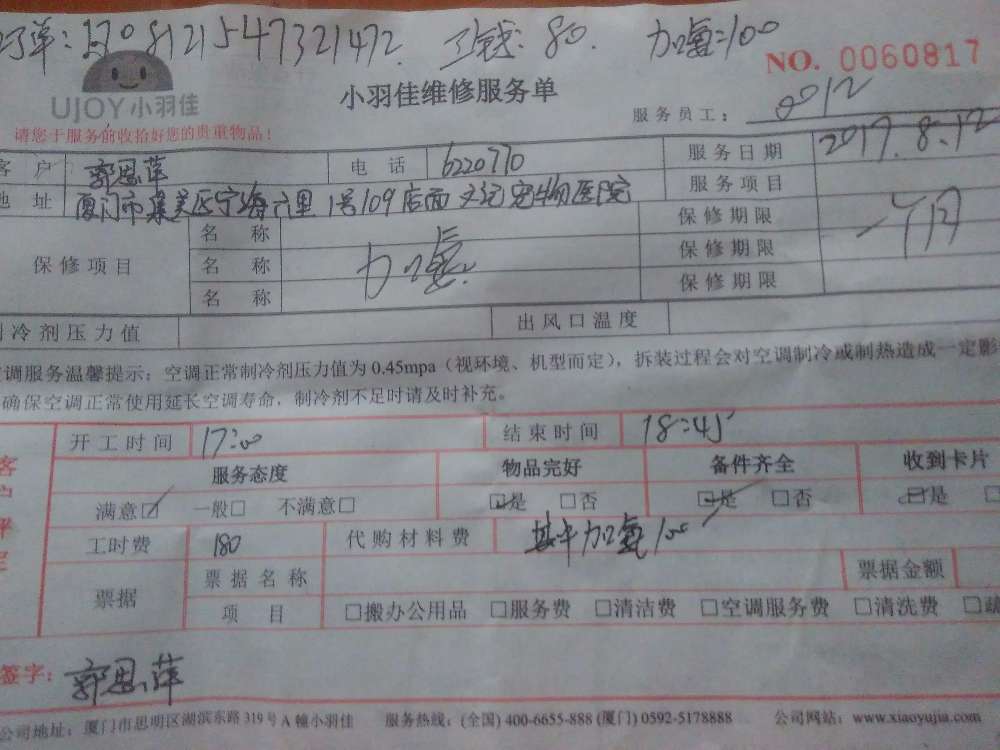 订单: 1708121547321472. 工钱: 80. 加氟=100
NO. 0060817
UJOY小羽佳
小羽佳维修服务单
服务员工: 0012
请您于服务前收拾好您的贵重物品!
客户 郭思萍 电话 6220770 服务日期 2017.8.12
地址 厦门市集美区宁海六里1号109店面 宠物医院 服务项目
保修项目 名称 加氟 保修期限 一个月
名称 保修期限
名称 保修期限
制冷剂压力值 出风口温度
空调服务温馨提示: 空调正常制冷剂压力值为0.45mpa (视环境、机型而定), 拆装过程会对空调制冷或制热造成一定影
确保空调正常使用延长空调寿命, 制冷剂不足时请及时补充。
开工时间 17:00 结束时间 18:45
服务态度 物品完好 备件齐全 收到卡片
满意☑ 一般□ 不满意□ ☑是 □否 ☑是 □否 ☑是 □
工时费 180 代购材料费 其中加氟100
票据 票据名称 票据金额
项目 □搬办公用品 □服务费 □清洁费 □空调服务费 □清洗费 □疏
客户评定
签字: 郭思萍
公司地址: 厦门市思明区湖滨东路319号A幢小羽佳 服务热线: (全国) 400-6655-888 (厦门) 0592-5178888 公司网站: www.xiaoyujia.com